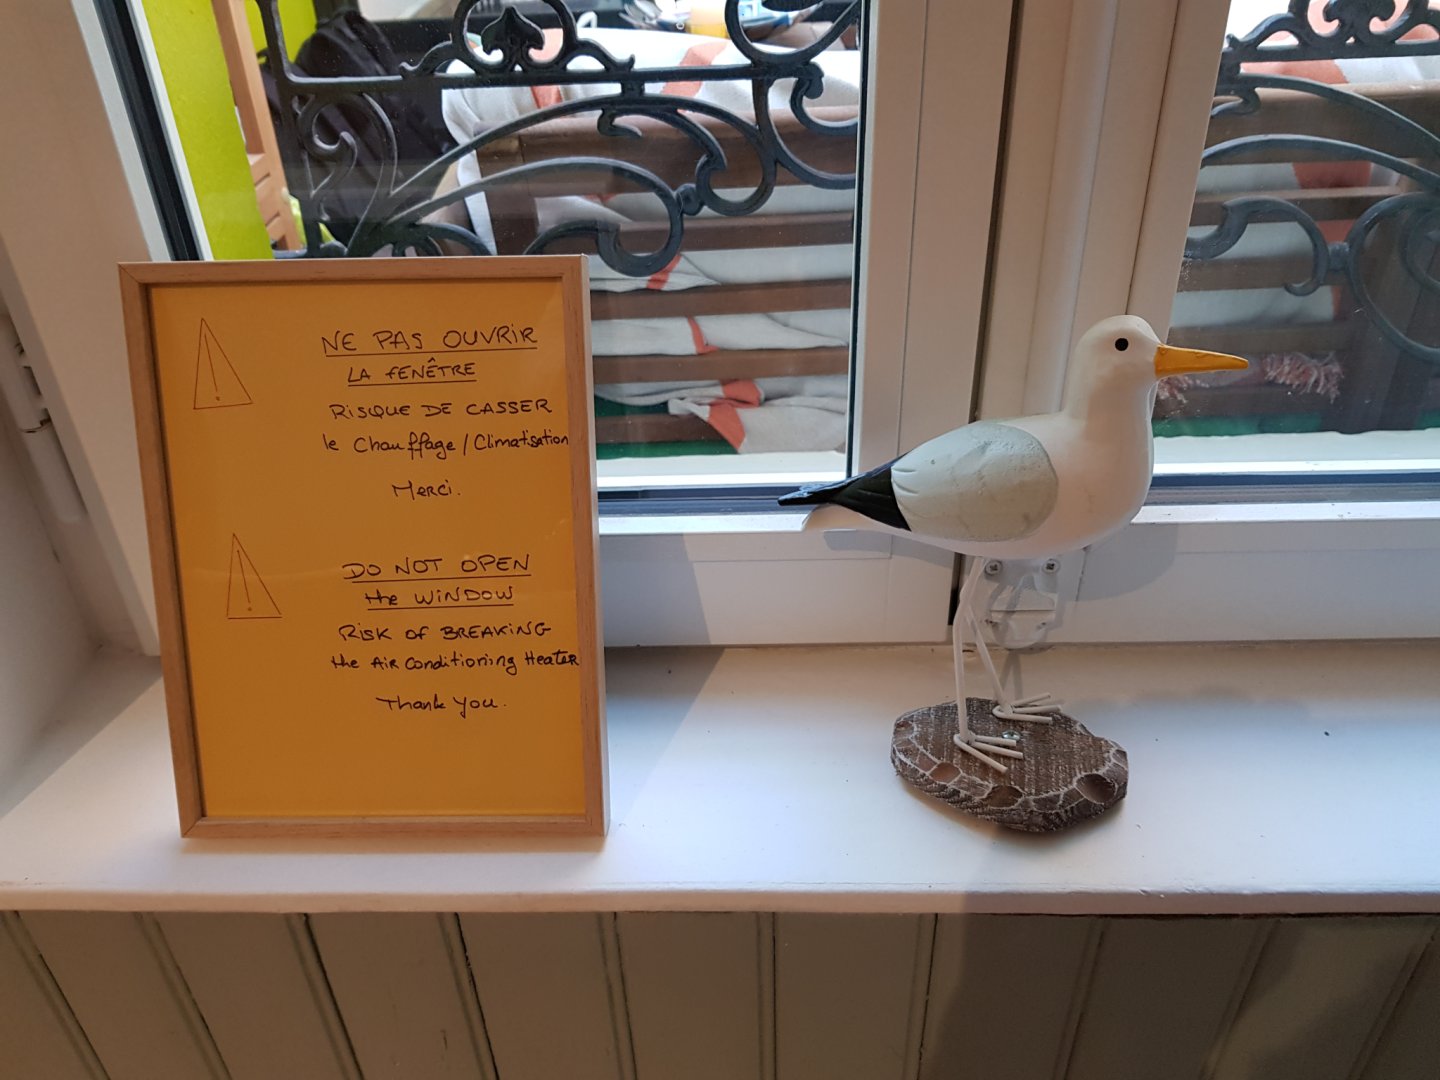 NE PAS OUVRIR
LA FENÊTRE
RISQUE DE CASSER
le Chauffage / Climatisation
Merci.
DO NOT OPEN
the WINDOW
RISK OF BREAKING
the AIR Conditioning Heater
Thank you.